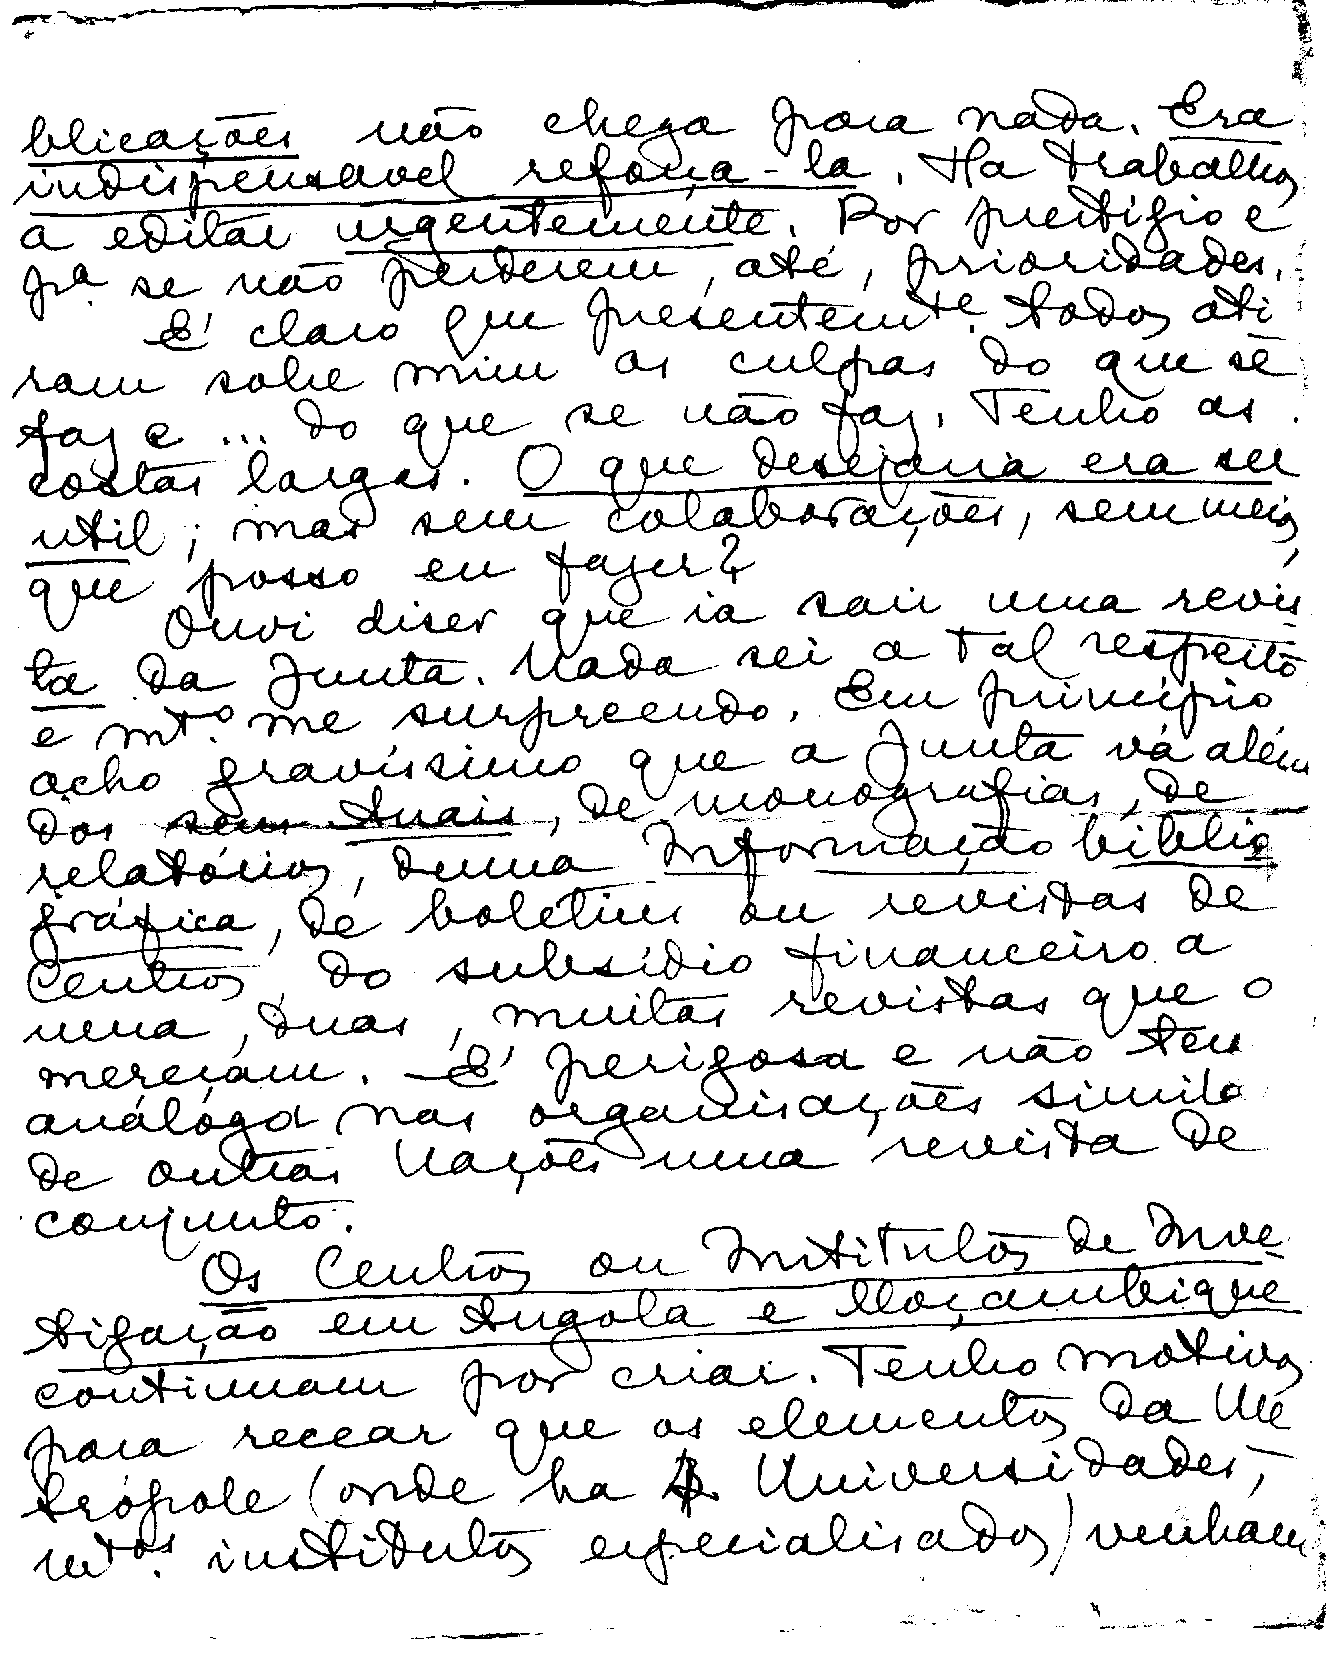 blicações não chega para nada. Era
indispensavel reforça-la. Ha trabalhos
a editar urgentemente. Por prestigio e
pª se não perderem, até, prioridades.
E' claro que presentemte. todos ati
ram sobre mim as culpas do que se
faz e ... do que se não faz. Tenho as
costas largas. O que desejaria era ser
util; mas sem colaborações, sem meios,
que posso eu fazer?
Ouvi diser que ia sair uma revis
ta da Junta. Nada sei a tal respeito
e mtº. me surpreendo. Em princípio
acho gravíssimo que a Junta vá além
dos seus Anais, de monografias, de
relatórios, duma Informação biblio
gráfica, de boletins ou revistas de
Centros, do subsídio financeiro a
uma, duas, muitas revistas que o
mereçam. E' perigosa e não tem
análogo nas organisações simila
de outras Nações uma revista de
conjunto.
Os Centros ou Institutos de Inve
tigação em Angola e Moçambique
continuam por criar. Tenho motivos
para recear que os elementos da Me
trópole (onde ha Universidades,
mtos. institutos especialisados) venham